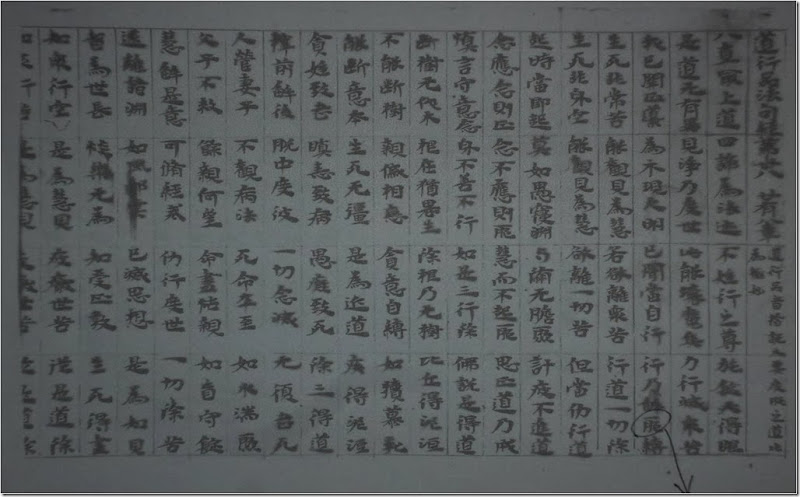 道行品法句經第廿八 廿八章
道行品者旨說大要度脫之道此為極妙
八直最上道 四諦為法迹 不婬行之尊 施燈必得眼
是道无有畏 見淨乃度世 此能壞魔兵 力行滅邪苦
我已開正道 為大現大明 已聞當自行 行乃解邪縛
生死非常苦 能觀見為慧 若欲離眾苦 行道一切除
生死非身空 能觀見為慧 欲離一切苦 但當勤行道
起時當即起 莫如愚覆淵 與墮无瞻聚 計疲不進道
念應念則正 念不應則邪 慧而不起邪 思正道乃成
慎言守意念 身不善不行 如是三行除 佛說是得道
斷樹无伐本 根在猶畏生 除根乃无樹 比丘得泥洹
不能斷樹 親戚相戀 貪意自縛 如犢慕乳
能斷意本 生死无彊 是為近道 疾得泥洹
貪婬致老 瞋恚致病 愚癡致死 除三得道
釋前解後 脫中度彼 一切念滅 无復老死
人營妻子 不觀病法 死命卒至 如水湍驟
父子不救 餘親何望 命盡怙親 如盲守燈
慧解是意 可脩經戒 勤行度世 一切除苦
遠離諸淵 如風却雲 已滅思想 是為知見
智為世長 惔樂无為 知受正教 生死得盡
知眾行空 是為慧見 疲厭世苦 從是道除